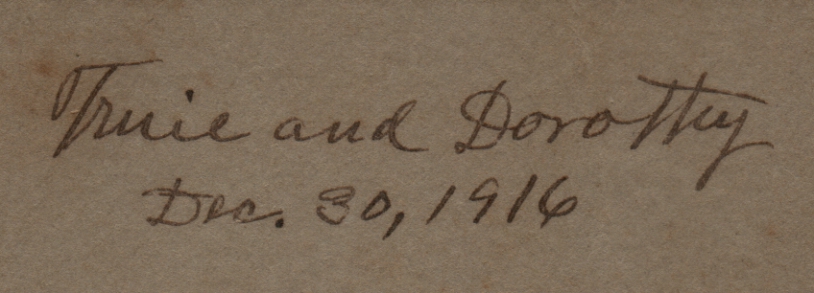 Truie and Dorothy
Dec. 30, 1916